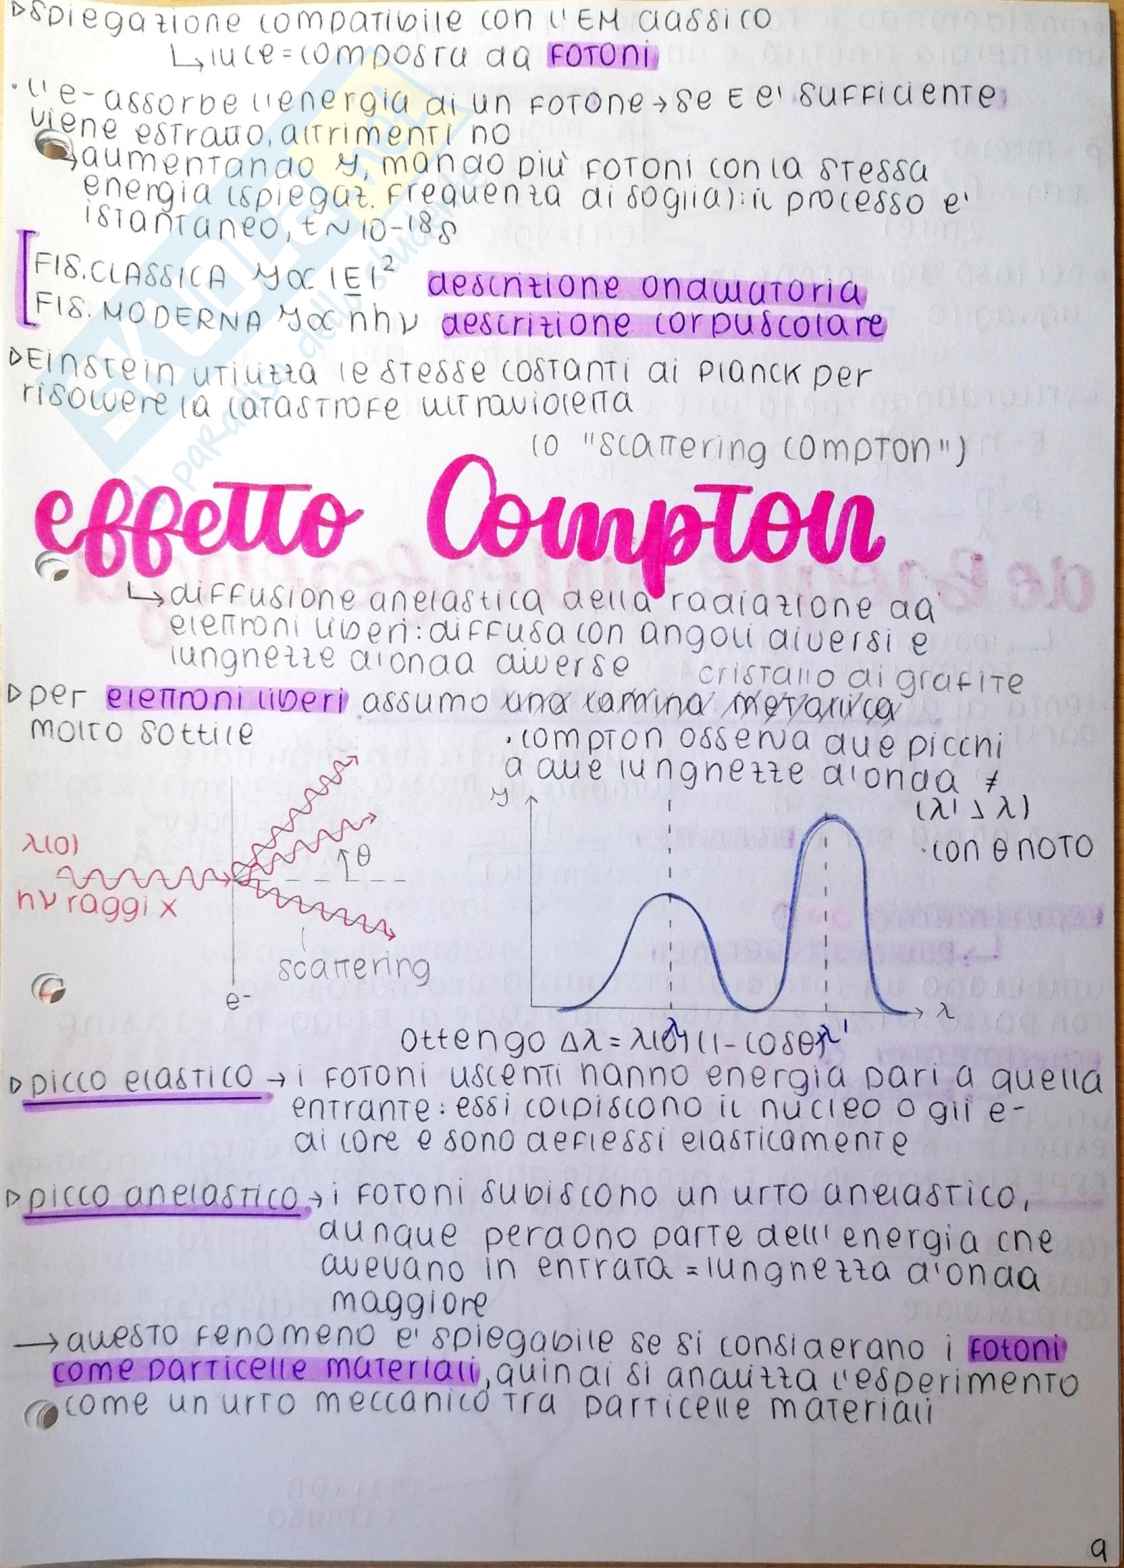 ▷spiegazione compatibile con l'EM classico
↳luce=composta da FOTONI
·l'e- assorbe l'energia di un FOTONE→se E e' sufficiente
viene estratto, altrimenti no
↳aumentando I, mando più FOTONI con la stessa
energia (spiegaz. frequenza di soglia): il processo e'
istantaneo, t~10⁻¹⁸s
FIS.CLASSICA I∝|E|² descrizione ondulatoria
FIS. MODERNA I∝nhν descrizione corpuscolare
▷Einstein utilizza le stesse costanti di Planck per
risolvere la catastrofe ultravioletta
(o "scattering compton")
effetto Compton
↳diffusione anelastica della radiazione da
elettroni liberi: diffusa con angoli diversi e
lunghezze d'onda diverse
cristallo di grafite
▷per elettroni liberi assumo una lamina metallica
molto sottile
·compton osserva due picchi
a due lunghezze d'onda ≠
(λ' > λ)
·con θ noto
I
λ(0)
θ
hν raggi x
scattering
e-
λ
λ
λ'
Ottengo Δλ = λ(0)(1-cosθ)
▷picco elastico→i fotoni uscenti hanno energia pari a quella
entrante: essi colpiscono il nucleo o gli e-
di core e sono deflessi elasticamente
▷picco anelastico→i fotoni subiscono un urto anelastico,
dunque perdono parte dell'energia che
avevano in entrata = lunghezza d'onda
maggiore
→questo fenomeno e' spiegabile se si considerano i fotoni
come particelle materiali, quindi si analizza l'esperimento
come un urto meccanico tra particelle materiali
9